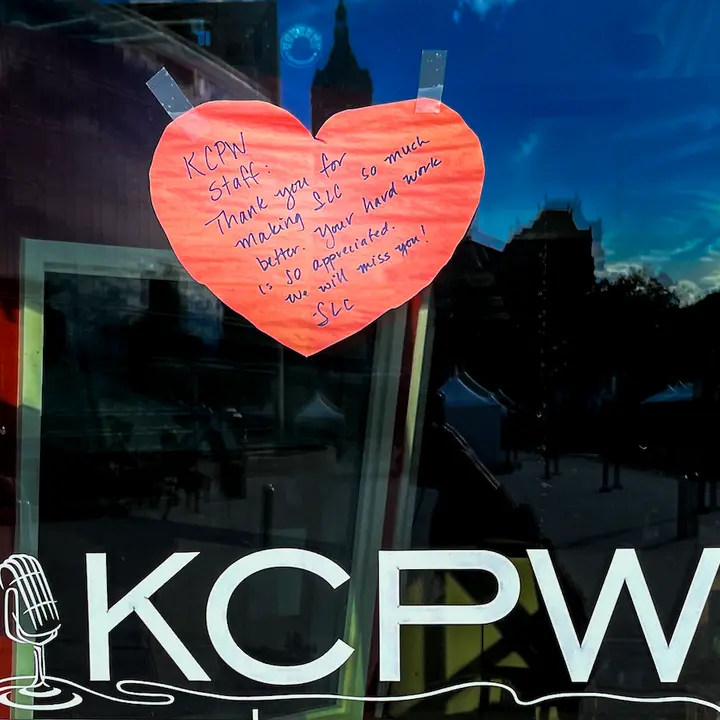 KCPW
Staff:
Thank you for
making SLC so much
better. Your hard work
is so appreciated.
We will miss you!
-SLC
KCPW